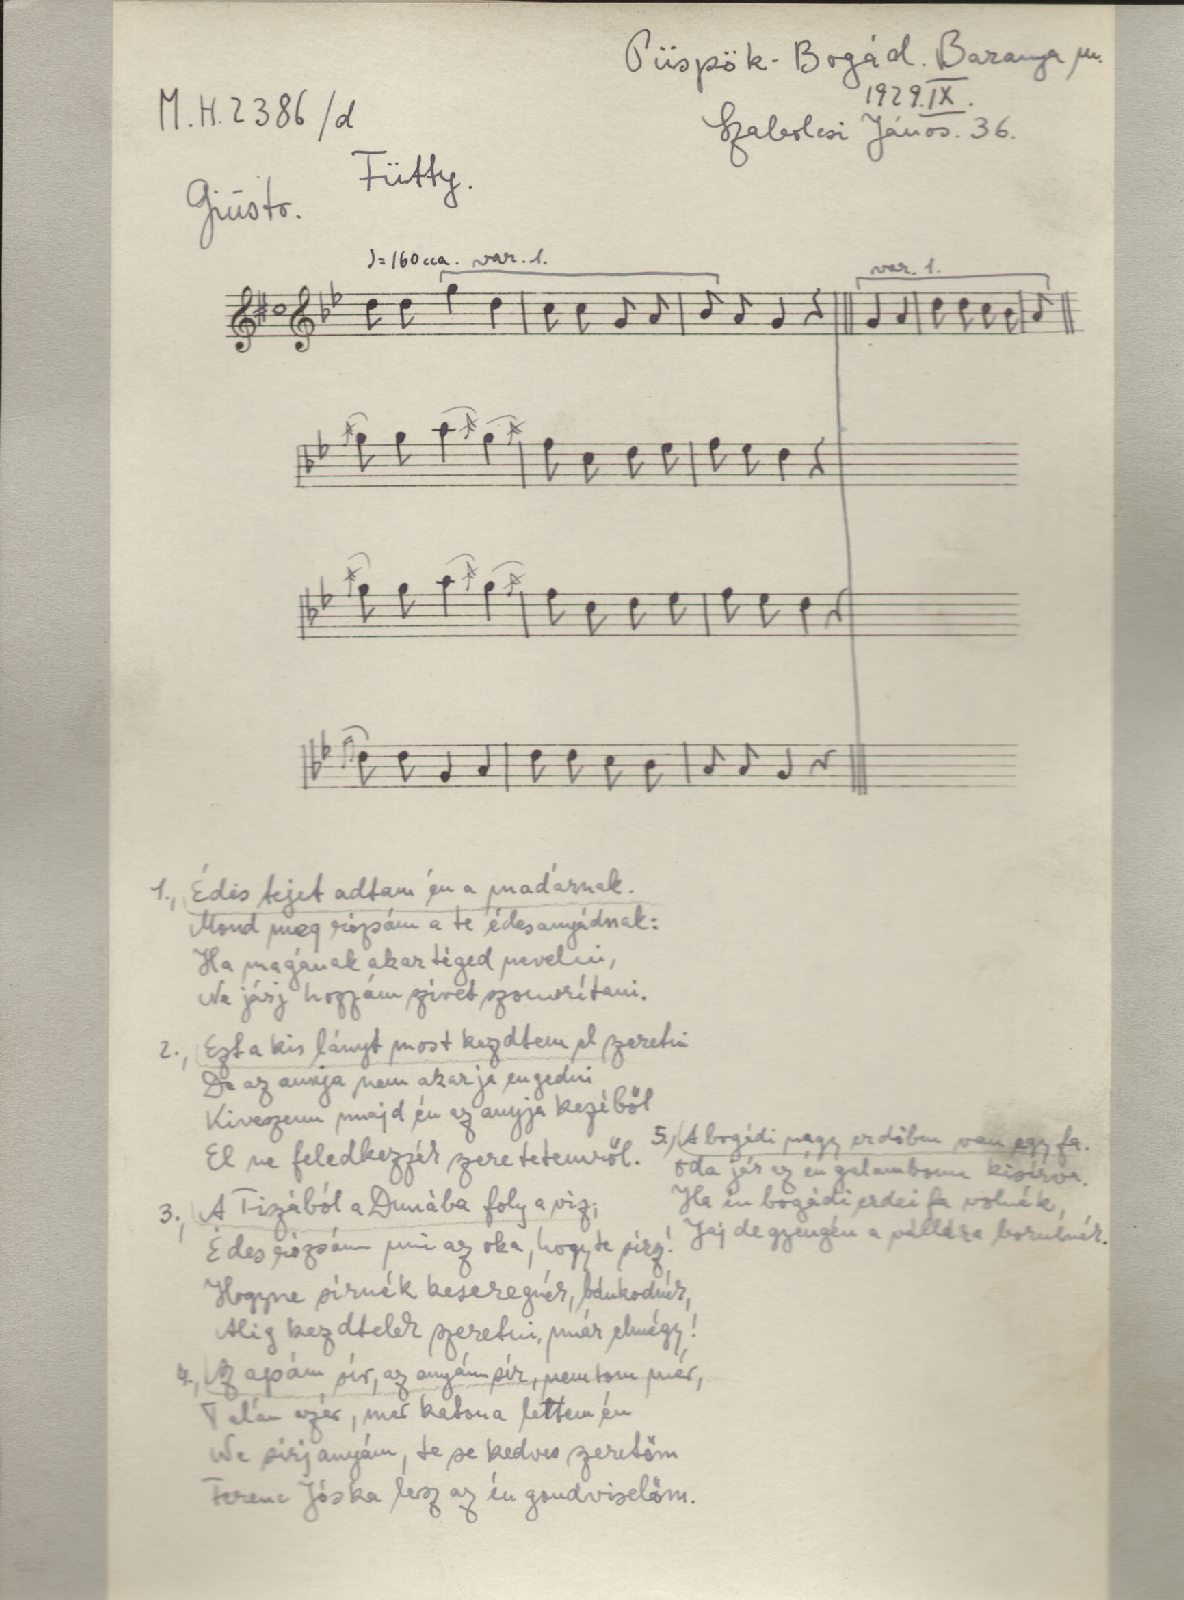 Püspök-Bogád. Baranya m.
1929. IX.
M.H. 2386/d
Szabolcsi János. 36.
Fütty.
Giusto.
♩=160 cca. var. 1.
var. 1.
1., Édes tejet adtam én a madárnak.
Mond meg rózsám a te édesanyádnak:
Ha magának akar téged nevelni,
Ne járj hozzám szivet szomorítani.
2., Ezt a kis lányt most kezdtem el szeretni
De az annja nem akarja engedni
Kiveszem majd én az anyja kezéből
El ne feledkezzél szeretetemről.
3., A Tiszából a Dunába foly a viz;
Édes rózsám mi az oka, hogy te sírsz!
Hogyne sirnék keseregnék, bánkodnék,
Alig kezdtelek szeretni, már elmégy!
4., Az apám sír, az anyám sír, nem tom mér,
Talán azér, mer katona lettem én
Ne sirj anyám, te se kedves szeretőm
Ferenc Jóska lész az én gondviselőm.
5., A bogádi nagy erdőben van egy fa.
Oda jár az én galambom kisírva.
Ha én bogádi erdei fa volnék,
Jaj de gyengén a vállára borulnék.